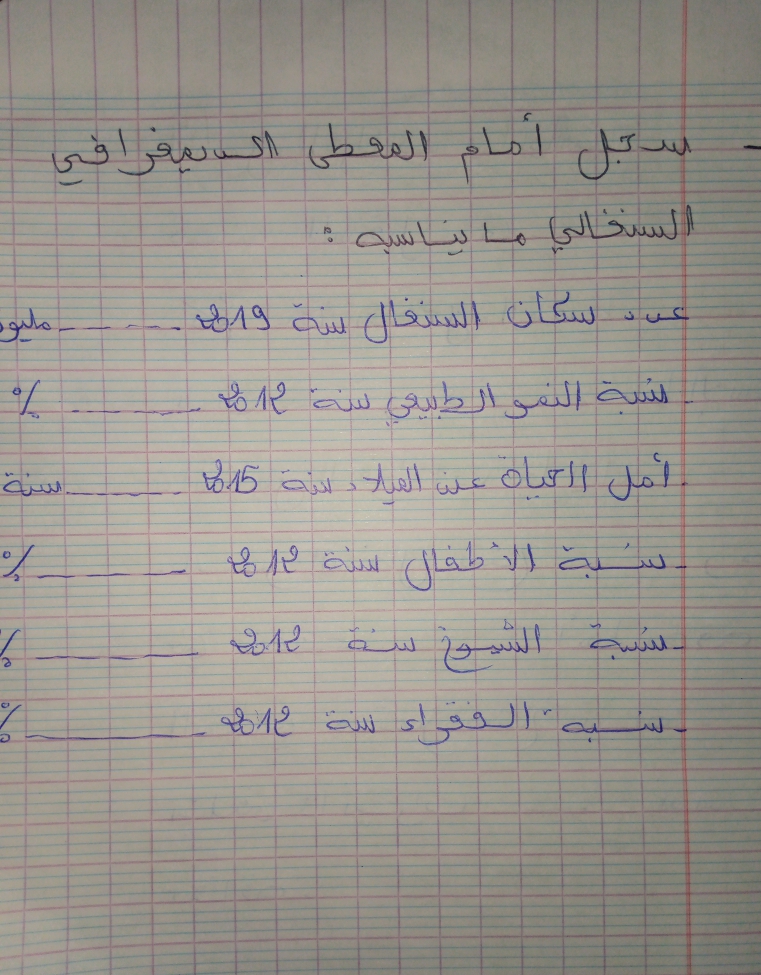 - سجل أمام المعطى الديمغرافي
السنغالي ما يناسبه :
عدد سكان السنغال سنة 2019 ------ مليون
- نسبة النمو الطبيعي سنة 2012 ------ %
- أمل الحياة عند الميلاد سنة 2015 ------ سنة
- نسبة الأطفال سنة 2012 ------ %
- نسبة الشيوخ سنة 2012 ------ %
- نسبة الفقراء سنة 2012 ------ %